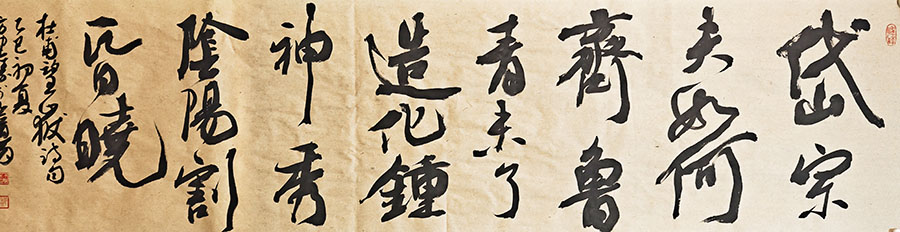 岱宗
夫如何
齊魯
青未了
造化鍾
神秀
陰陽割
昏曉
杜甫望嶽詩句
乙巳初夏